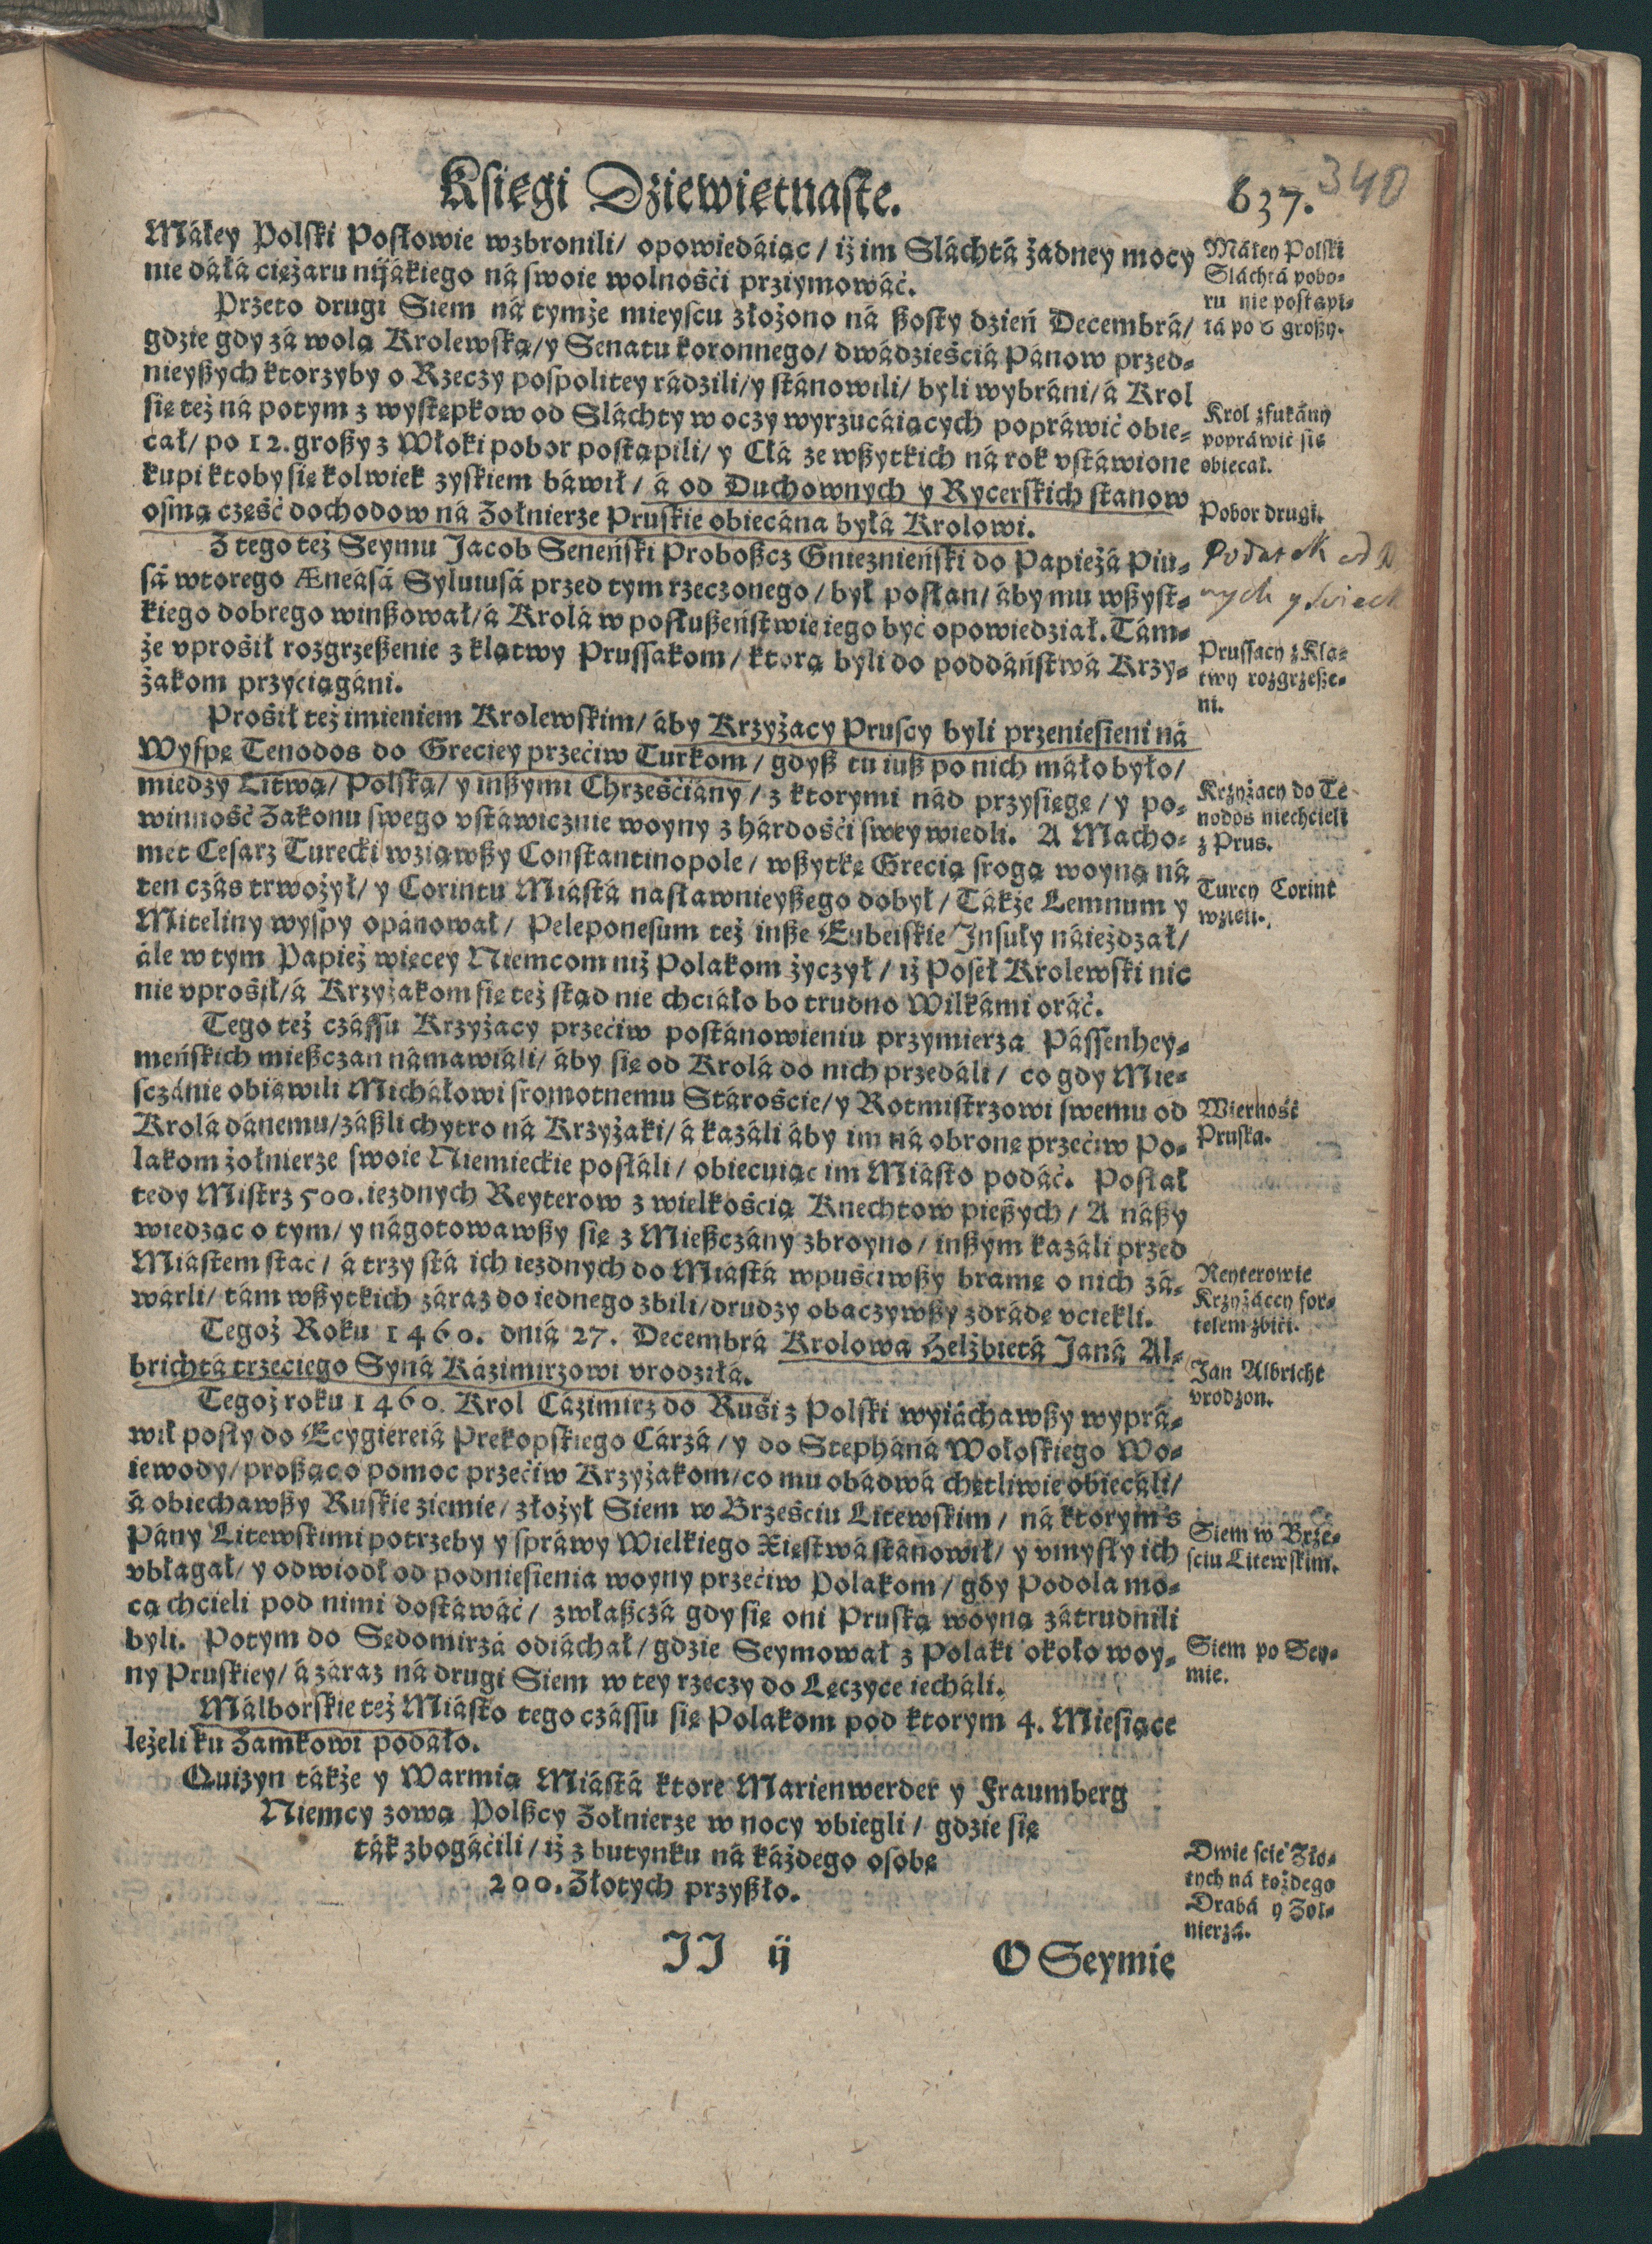 Księgi Dziewiętnaste.
637.
340
Máłey Polski Posłowie wzbronili/ opowiedáiąc/ iż im Sláchtá żadney mocy
nie dáłá ciężaru nijákiego ná swoie wolnośći prziymowáć.
Przeto drugi Siem ná tymże mieyscu złożono ná ßosty dzień Decembrá/
gdzie gdy zá wolą Krolewską/ y Senatu koronnego/ dwádzieśćiá Pánow przed-
nieyßych ktorzyby o Rzeczy pospolitey rádzili/ y stánowili/ byli wybráni/ á Krol
się też ná potym z występkow od Sláchty w oczy wyrzucáiących popráwić obie-
cał/ po 12. großy z Włoki pobor postąpili/ y Cłá ze wßytkich ná rok vstáwione
kupi ktoby się kolwiek zyskiem báwił/ á od Duchownych y Rycerskich stanow
osmą część dochodow ná Zołnierze Pruskie obiecána byłá Krolowi.
Z tego też Seymu Jacob Seneński Proboßcz Gnieznieński do Papieżá Piu-
sá wtorego Æneásá Sylwiusá przed tym rzeczonego/ był posłan/ áby mu wßyst-
kiego dobrego winßował/ á Krolá w posłußeństwie iego być opowiedział. Tám-
że vprośił rozgrzeßenie z klątwy Prussakom/ ktorą byli do poddáństwá Krzy-
żakom przyciągáni.
Prośił też imieniem Krolewskim/ áby Krzyżacy Pruscy byli przeniesieni ná
Wyspę Tenodos do Greciey przećiw Turkom/ gdyß tu iuß po nich máło było/
miedzy Litwą/ Polską/ y inßymi Chrześćiány/ z ktorymi nád przysięgę/ y po-
winność Zakonu swego vstáwicznie woyny z hárdośći swey wiedli. A Macho-
met Cesarz Turecki wziąwßy Constantinopole/ wßytkę Grecią srogą woyną ná
ten czás trwożył/ y Corintu Miástá nasławnieyßego dobył/ Tákże Lemnum y
Miteliny wyspy opánował/ Peleponesum też inße Eubeiskie Insuły náieżdzał/
ále w tym Papież więcey Niemcom niż Polakom życzył/ iż Poseł Krolewski nic
nie vprosił/ á Krzyżakom się też stąd nie chciáło bo trudno Wilkámi oráć.
Tego też czássu Krzyżacy przećiw postánowieniu przymierza Pássenhey-
meńskich mießczan námawiáli/ áby się od Krolá do nich przedáli/ co gdy Mie-
sczánie obiáwili Micháłowi sromotnemu Stároście/ y Rotmistrzowi swemu od
Krolá dánemu/ záßli chytro ná Krzyżaki/ á kazáli áby im ná obronę przećiw Po-
lakom żołnierze swoie Niemieckie posłáli/ obiecuiąc im Miásto podáć. Posłał
tedy Mistrz 500. iezdnych Reyterow z wielkością Knechtow pießych/ A náßy
wiedząc o tym/ y nágotowawßy się z Mießczány zbroyno/ inßym kazáli przed
Miástem stac/ á trzy stá ich iezdnych do Miástá wpuściwßy bramę o nich zá-
wárli/ tám wßytkich záraz do iednego zbili/ drudzy obaczywßy zdrádę vciekli.
Tegoż Roku 1460. dniá 27. Decembrá Krolowa Helżbietá Janá Al-
brichtá trzeciego Syná Kázimirzowi vrodziłá.
Tegoż roku 1460. Krol Cázimirz do Ruśi z Polski wyiáchawßy wyprá-
wił posły do Ecygiereiá Prekopskiego Cárzá/ y do Stepháná Wołoskiego Wo-
iewody/ proßąc o pomoc przećiw Krzyżakom/ co mu obádwá chętliwie obiecáli/
á obiechawßy Ruskie ziemie/ złożył Siem w Brześciu Litewskim/ ná ktorym s
Pány Litewskimi potrzeby y spráwy Wielkiego Xięstwá stánowił/ y vmysły ich
vbłagał/ y odwiodł od podniesienia woyny przećiw Polakom/ gdy Podola mo-
cą chcieli pod nimi dostáwáć/ zwłaßczá gdy się oni Pruską woyną zátrudnili
byli. Potym do Sędomirzá odiáchał/ gdzie Seymował z Polaki około woy-
ny Pruskiey/ á záraz ná drugi Siem w tey rzeczy do Lęczyce iecháli.
Málborskie też Miásto tego czássu się Polakom pod ktorym 4. Miesiące
leżeli ku Zamkowi podáło.
Quizyn tákże y Warmią Miástá ktore Marienwerder y Fraumberg
Niemcy zową Polßcy Zołnierze w nocy vbiegli/ gdzie się
ták zbogáćili/ iż z butynku ná káżdego osobę
200. Złotych przyßło.
JJ ij
O Seymie
Máłey Polski
Sláchtá pobo-
ru nie postąpi-
łá po 6 großy.
Krol zfukány
popráwić się
obiecał.
Pobor drugi.
Podatek od
Prussacy z Klą-
twy rozgrzeße-
ni.
Krzyżacy do Te
nodos niechcieli
z Prus.
Turcy Corint
wzięli.
Wierność
Pruska.
Reyterowie
Krzyżáccy for-
telem zbici.
Jan Albricht
vrodzon.
Siem w Brze-
sciu Litewskim.
Siem po Sey-
mie.
Dwie scie Zło-
tych ná kożdego
Drabá y Żoł-
nierzá.